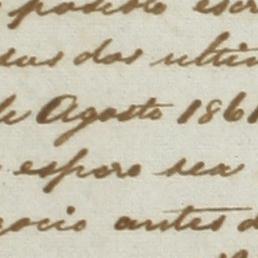 posesto escr
sas das ultim
de Agosto 1861
espero sea
gocio antes d